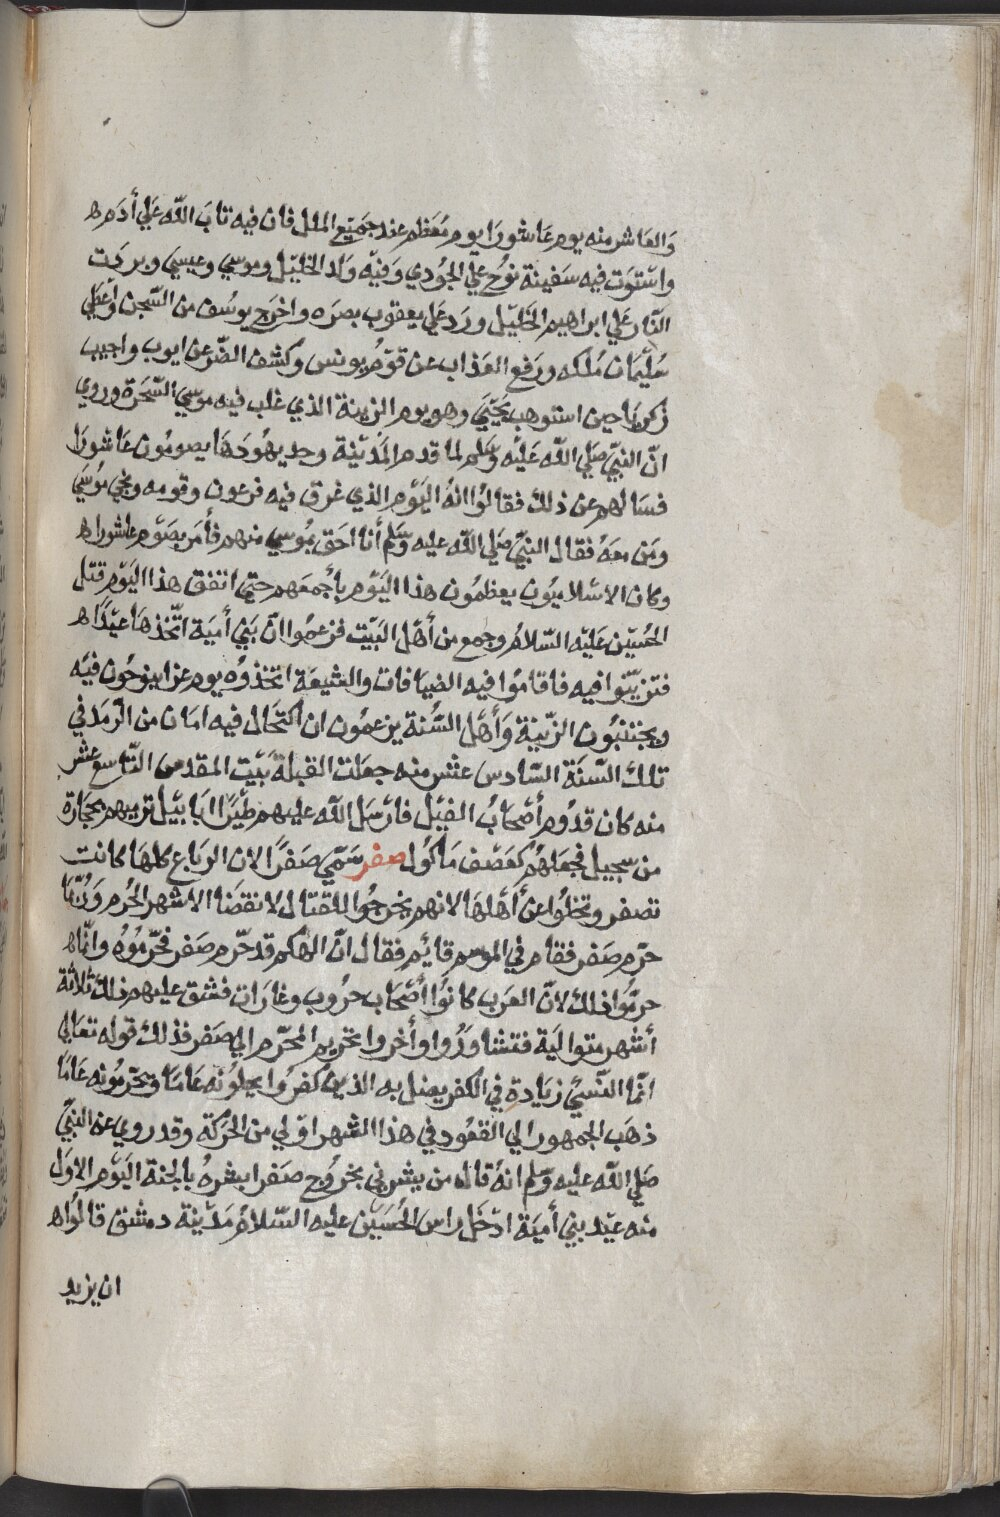 والعاشر منه يوم عاشورا يوم معظم عند جميع الملل فان فيه تابَ اللّه عَلي أدَم ه
واسْتوَت فيه سَفينة نوُح علي الجوُدي وَفيْه وَلد الخليْل وموسي وعيسَي وبردَت
النّار عَلي ابراهيم الخليْل ورَد عَلي يعقوب بصرَه واخرَج يوسُف من السّجن واعْطي
سُليْمان مُلكه ورَفع العَذاب عن قوْم يونس وكشف الضّر عن ايوب واجيب
زكريَا حين استوهب يَحْيَي وهو يوم الزينة الذي غلب فيه موسَي السّحَرة وروي
انّ النبيّ صَلي اللّه عَليْه وسَلم لما قدم المَديْنة وجد يهُودَهَا يصومُون عَاشورَا
فسَالهم عن ذلك فقالوُا انهُ اليَوْم الذي غرق فيه فرعون وقومه ونجي موُسَي
ومَن معَهُ فقال النبيّ صَلي اللّه عليه وسَلم أنا احَق بموُسي منهم فأمَر بصَوْم عاشورا ه
وكان الاسْلاميوُن يعظمُون هذا اليَوْم بأجْمعَهم حتّي اتفق هذا اليَوْم قتل
الحُسيْن عَليْه السّلامُ وجمع من أهْل البَيْت فزعمُوا انّ بَني أميَة اتّخذ هَا عيْدًا ه
فتزيّنوا فيه فاقامُوا فيه الضيافات والشيعَة اتخذوُه يوم عزا ينوحُون فيْه
ويجتنبُون الزّينة وَأهْل السُّنة يزعمُون ان اكتحَال فيه امَان من الرّمَد في
تلك السّنَة السّادس عشر منه جعلت القبلة بَيْت المقدس التّاسع عشر
منه كان قدوُم أصْحابُ الفيْل فارْسَل اللّه عليهم طيْرًا ابَابيْل ترميهم بحجَارة
من سجيل فجعَلهُم كعَصْف مَاكوُل صفر سَمّي صَفرًا لان الربَاع كلهَا كانت
تصفر وتخلوُا عن أهْلهَا لانهم يخرجوُا للقتال لانقضَا الاشهر الحُرم وَرُبّما
حرّم صَفر فقام في الموسم قايُم فقال انّ الهكم قد حّرم صَفر فحّرمُوُه وانّما ه
حرّموُا ذلك لانّ العرَب كانوُا أصْحَاب حرُوب وغارَات فشق عليهم ذلك ثلاثة
أشهر متوالية فتشاوَرُوا وأخروا تحريم المحّرم الي صَفر فذلك قوله تعَالي
انمّا النّسيُ زيَادة في الكفر يضل به الذين كفرُوا يحلوُنه عَامًا ويحّرموُنه عَامًا
ذهَب الجمهور الي القعُود في هذا الشهر اوْلي من الحَركة وقد روي عن النبيّ
صَلي اللّه عليه وسّلم انهُ قال من يبشرني بخرُوج صَفر ابشرهُ بالجنة اليَوْم الاوَل
منه عيْد بني أميَة ادْخل راس الحُسَيْن عليه السّلامُ مَديْنة دمشق قالوُا ه
ان يزيد